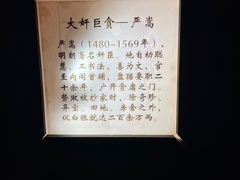 大奸巨贪—严嵩
严嵩（1480-1569年），
明朝著名奸臣。他自幼聪
慧，工书法，善为文，官
至内阁首辅，盘踞要职二
十余年，广开贪腐之门。
势败被抄家时，除奇珍、
异宝、田地、房舍之外，
仅白银就达二百余万两。